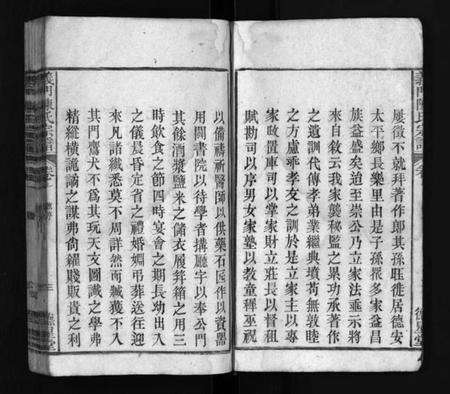 義門陳氏宗譜
屢徵不就拜著作郎其孫旺徙居德安
太平鄉長樂里由是子孫振多家益昌
族益盛矣逌至崇公乃立家法垂示將
來自敘云我家襲秘監之累功承著作
之遺訓代傳孝弟業繼典墳苟無敦睦
之方慮乖孝友之訓於是立家主以專
家政置庫司以掌家財立莊長以督租
賦勘司以序男女家塾以教童稚巫祝
以備禱祈醫師以供藥石匠作以資器
用開書院以待學者構廳宇以奉公門
其餘酒漿鹽米之儲衣履笄箱之用三
時飲食之節四時宴會之期長幼出入
之儀晨昏定省之禮婚嫻弔葬送往迎
來凡諸纖悉莫不周詳然而緘獲不入
其門鷹犬不為其玩天文圖讖之學弗
精縱橫詭譎之謀弗尚糴賤販貴之利
義門陳氏宗譜